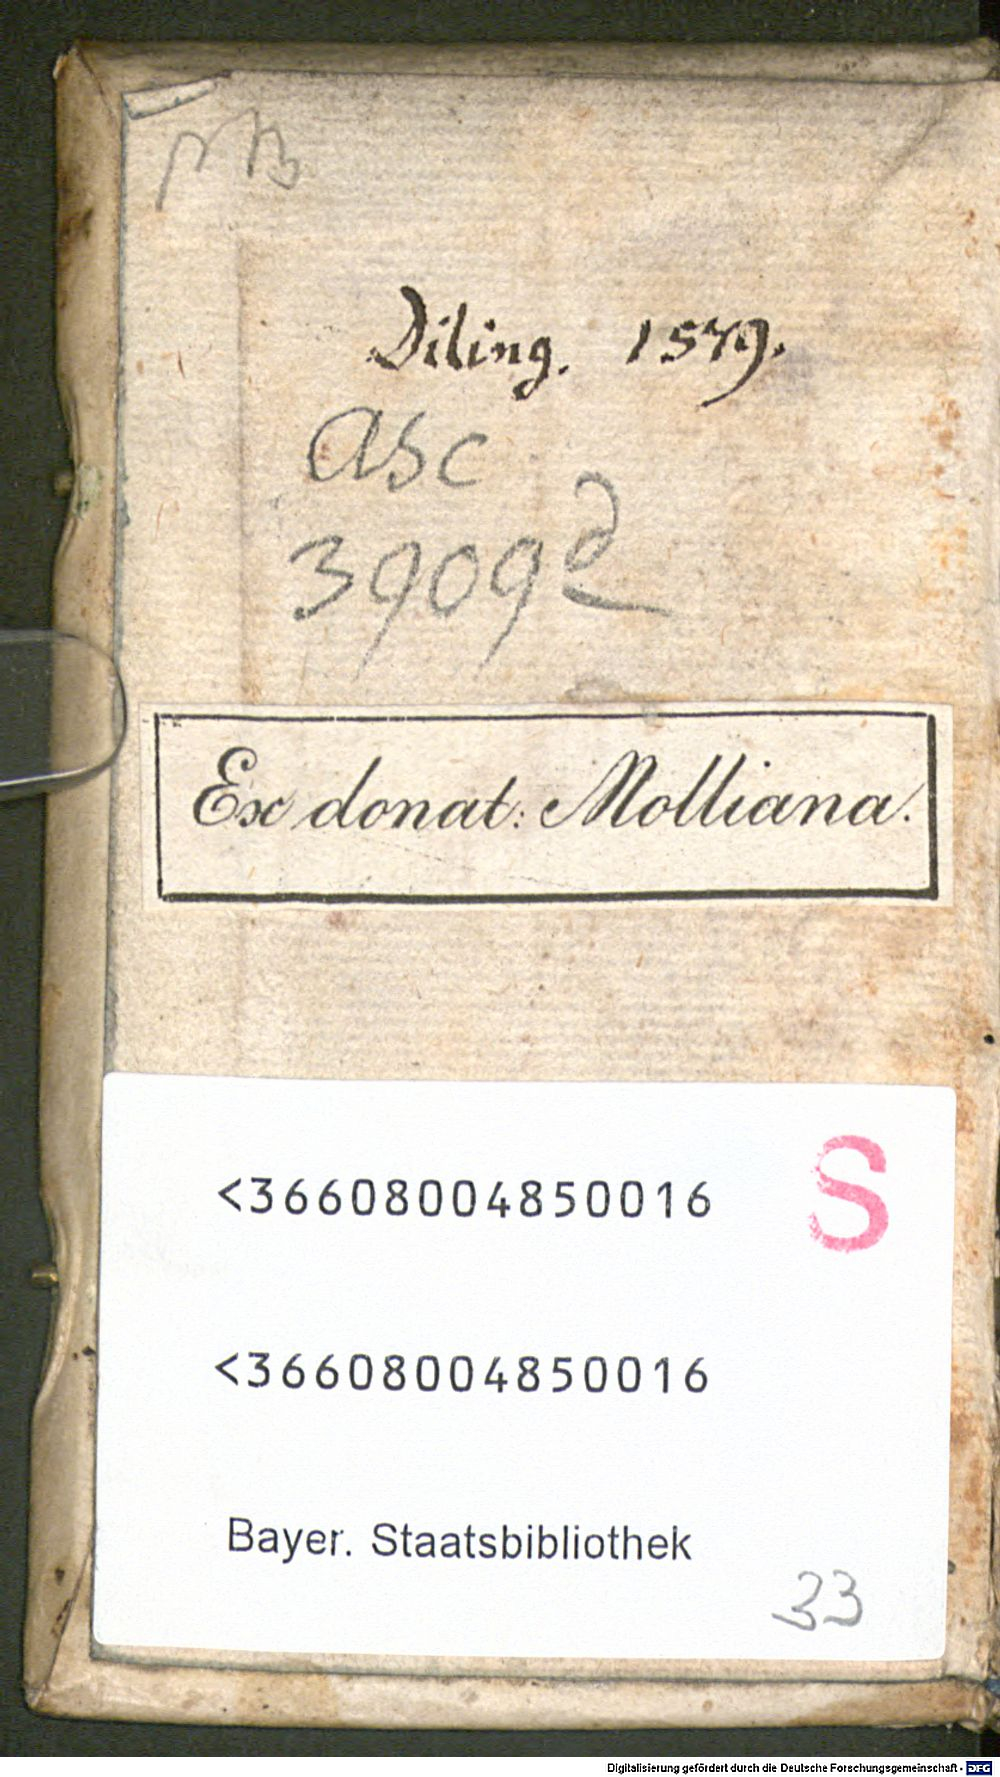 Diling. 1579.
Asc
3909 d
Ex donat: Molliana.
S
<36608004850016
<36608004850016
Bayer. Staatsbibliothek
33
Digitalisierung gefördert durch die Deutsche Forschungsgemeinschaft - DFG